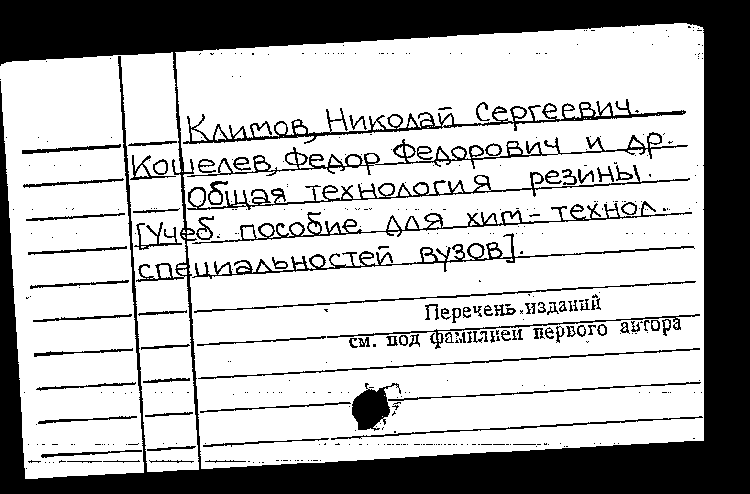 Климов, Николай Сергеевич.
Кошелев, Федор Федорович и др.
Общая технология резины.
[Учеб. пособие для хим-технол.
специальностей вузов].
Перечень изданий
см. под фамилией первого автора